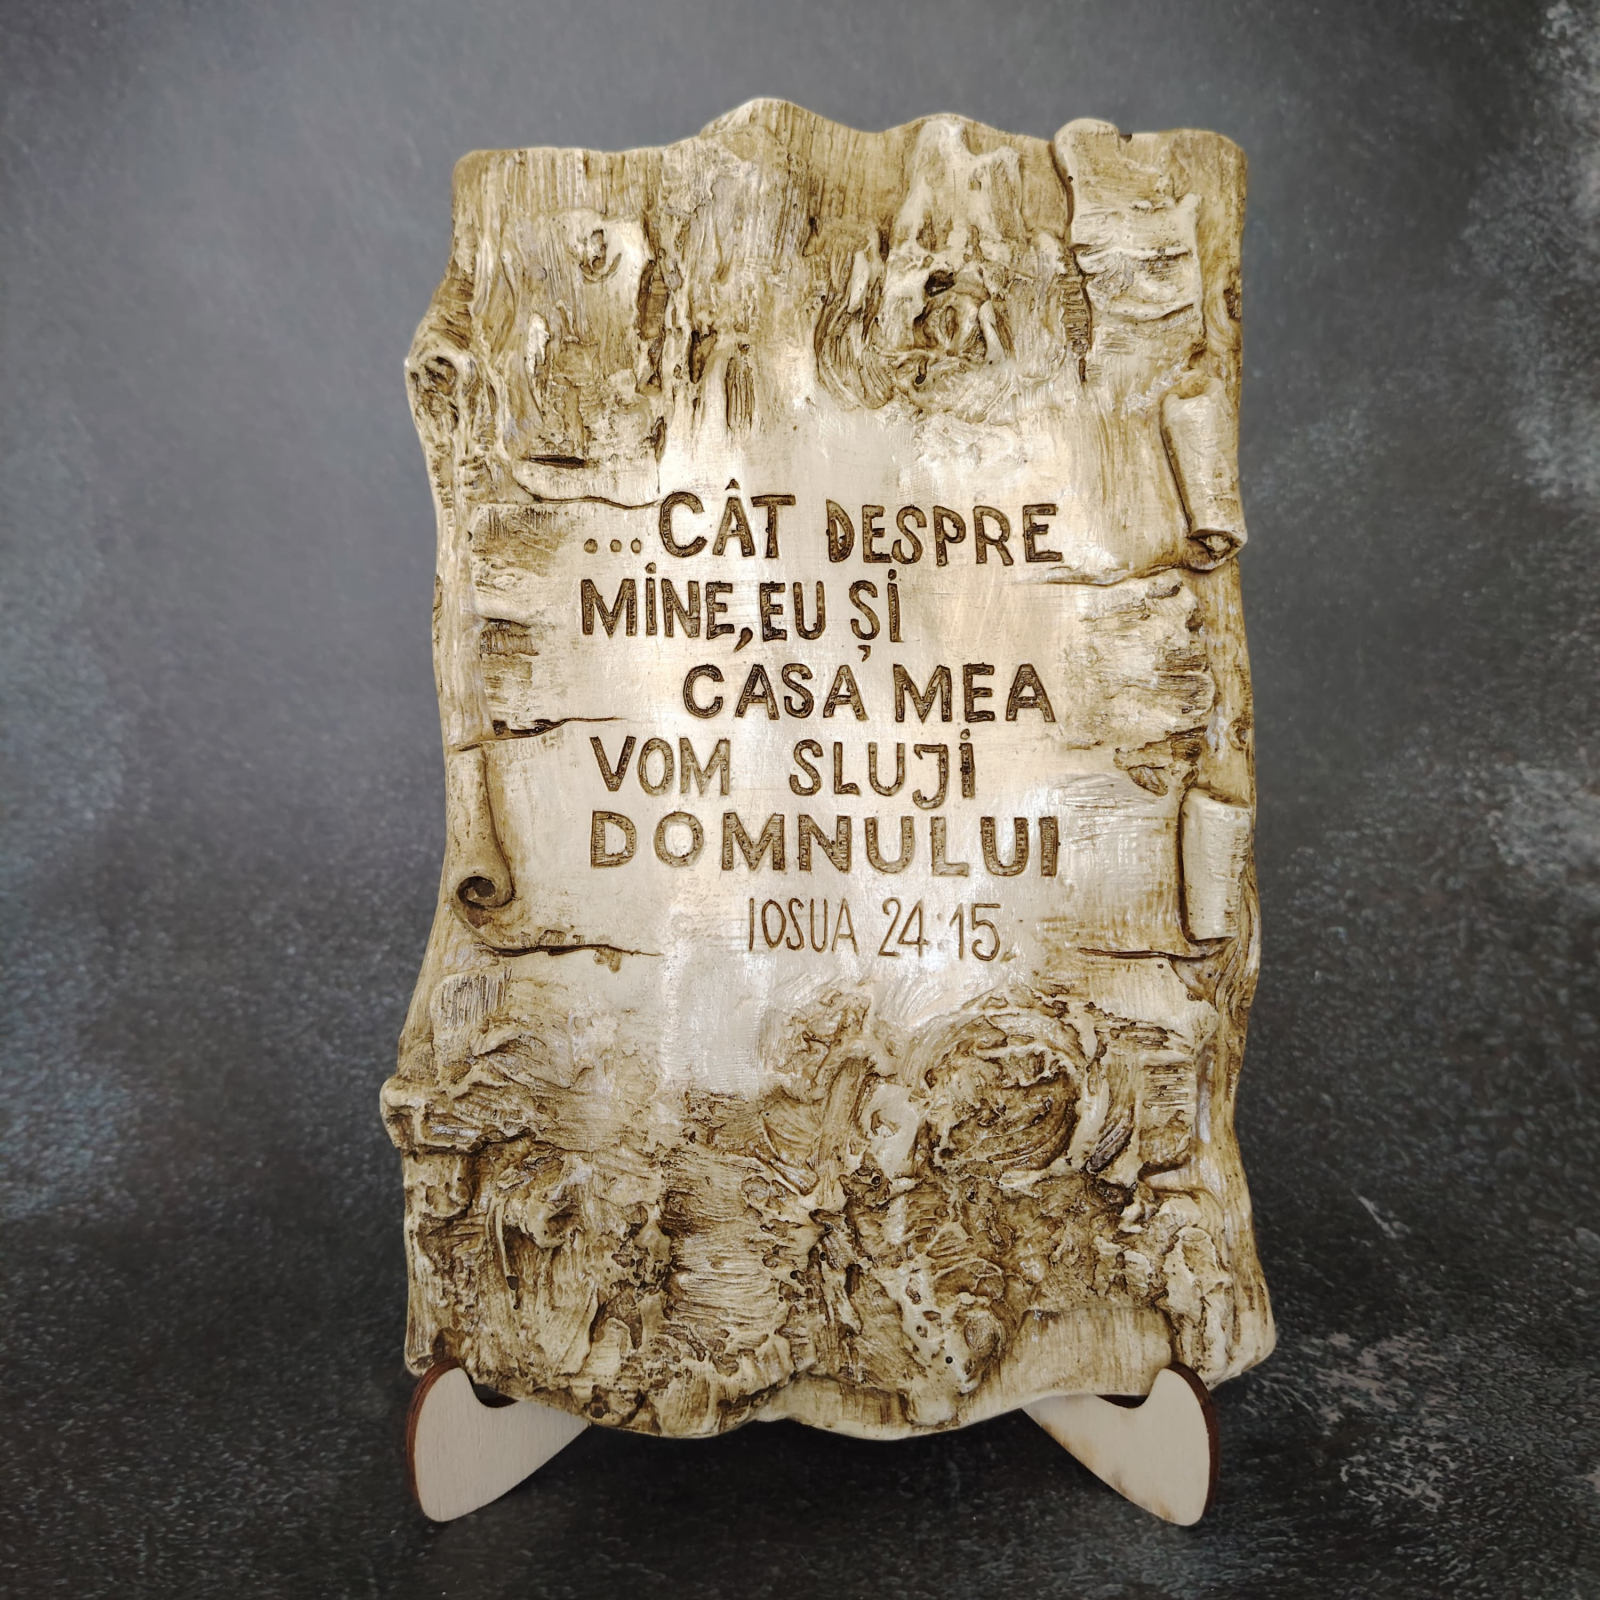 ...CÂT DESPRE
MİNE, EU ȘI
CASA MEA
VOM SLUJİ
DOMNULUI
IOSUA 24:15